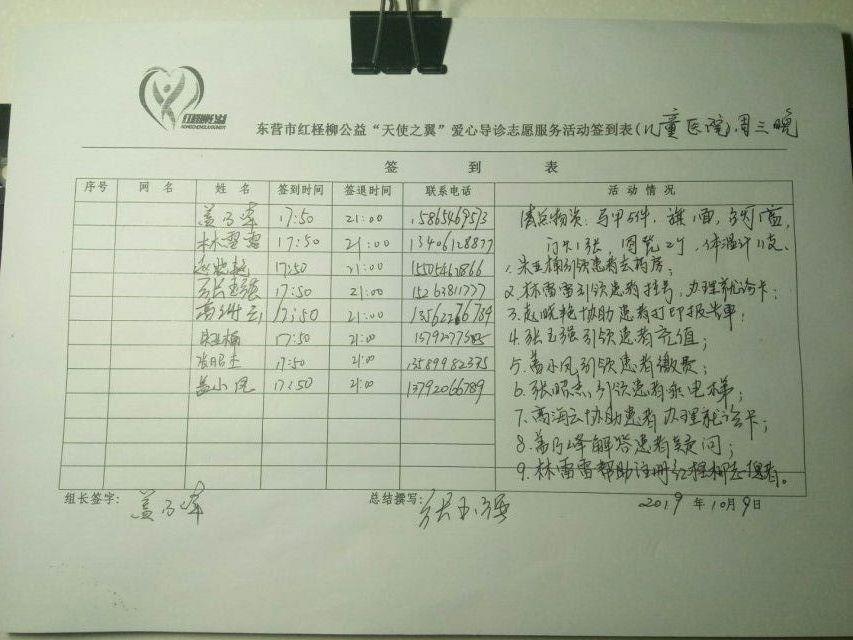 红柽柳公益
东营市红柽柳公益“天使之翼”爱心导诊志愿服务活动签到表(儿童医院)周三晚
签 到 表
序号 网 名 姓 名 签到时间 签退时间 联系电话 活 动 情 况
盖乃峰 17:50 21:00 15865469573
林雷雷 17:50 21:00 13406128877
赵晓艳 17:50 21:00
张玉强 17:50 21:00 15263811777
高海云 17:50 21:00 13562276789
朱亚楠 17:50 21:00
张昭杰 17:50 21:00
盖小凤 17:50 21:00 13792066789
清点物资:马甲 件,旗1面,
门卡1张,体温计
1.朱亚楠引领患者去药房;
2.林雷雷引领患者挂号,办理就诊卡;
3.赵晓艳协助患者打印报告单;
4.张玉强引领患者充值;
5.盖小凤引领患者缴费;
6.张昭杰引领患者乘电梯;
7.高海云协助患者办理就诊卡;
8.盖乃峰解答患者疑问;
9.林雷雷帮助注册红柽柳志愿者。
组长签字: 盖乃峰 总结撰写: 张玉强 2019 年 10月 9日